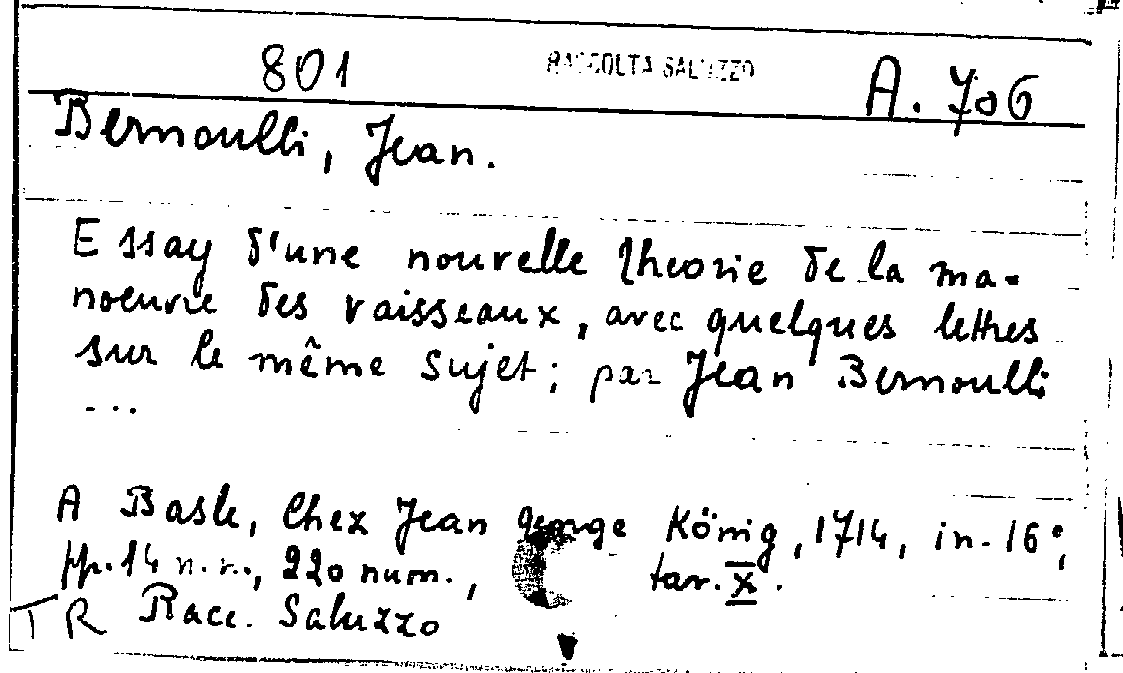 801 RACCOLTA SALUZZO A. 706
Bernoulli, Jean.
Essay d'une nouvelle theorie de la ma-
noeuvre des vaisseaux, avec quelques lettres
sur le même sujet; par Jean Bernoulli
...
A Basle, Chez Jean George König, 1714, in-16°,
pp. 14 n.n., 220 num., tav. X.
TR Racc. Saluzzo